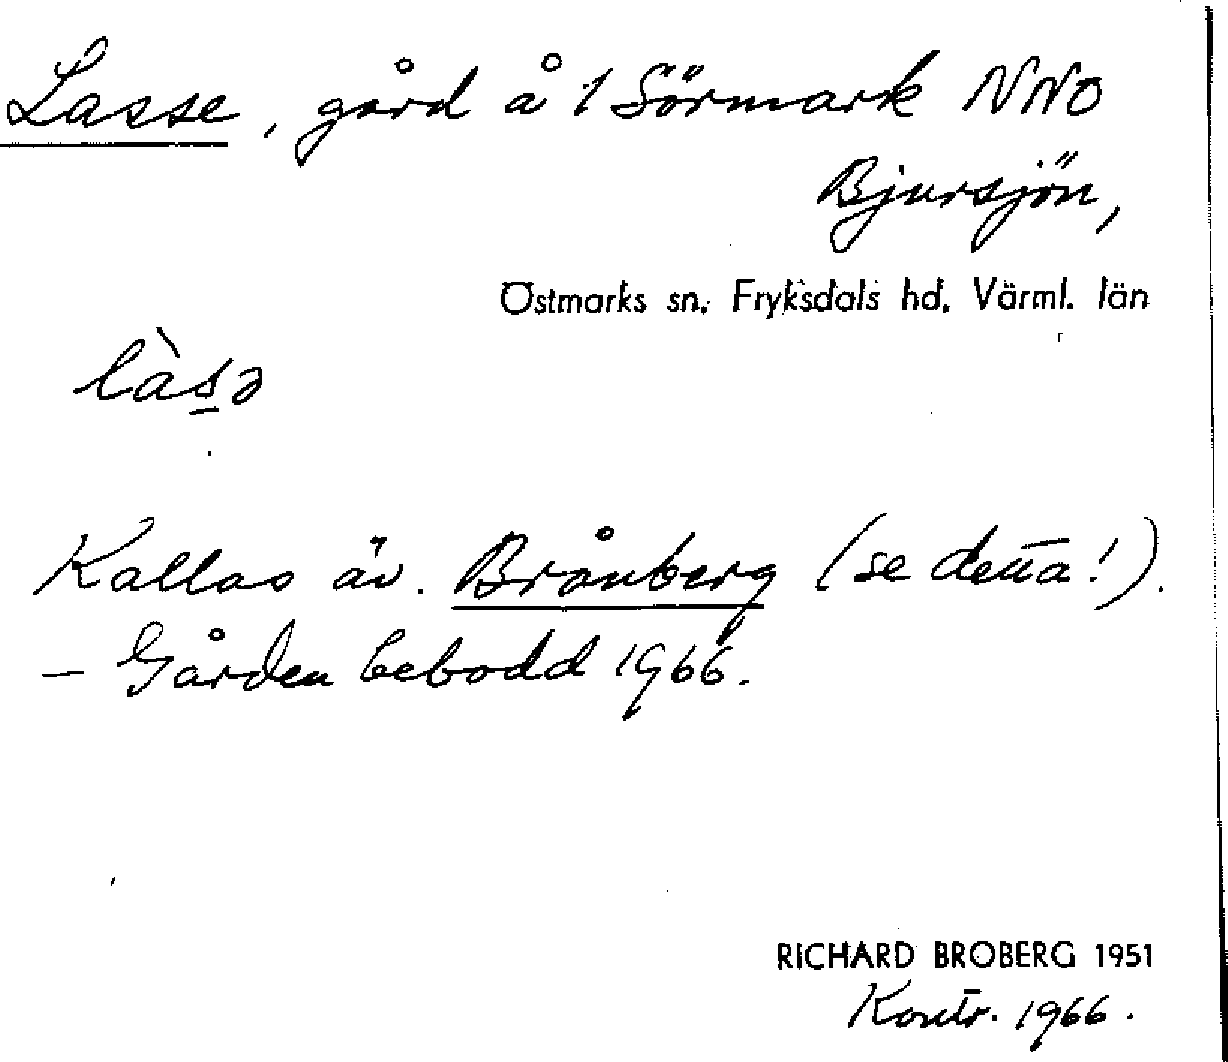 Lasse, gård å 1 Sörmark NNO
Bjursjön,
Östmarks sn, Fryksdals hd, Värml. län
làs̲ə
Kallas äv. Brånberg (se detta!).
– Gården bebodd 1966.
RICHARD BROBERG 1951
Kontr. 1966.